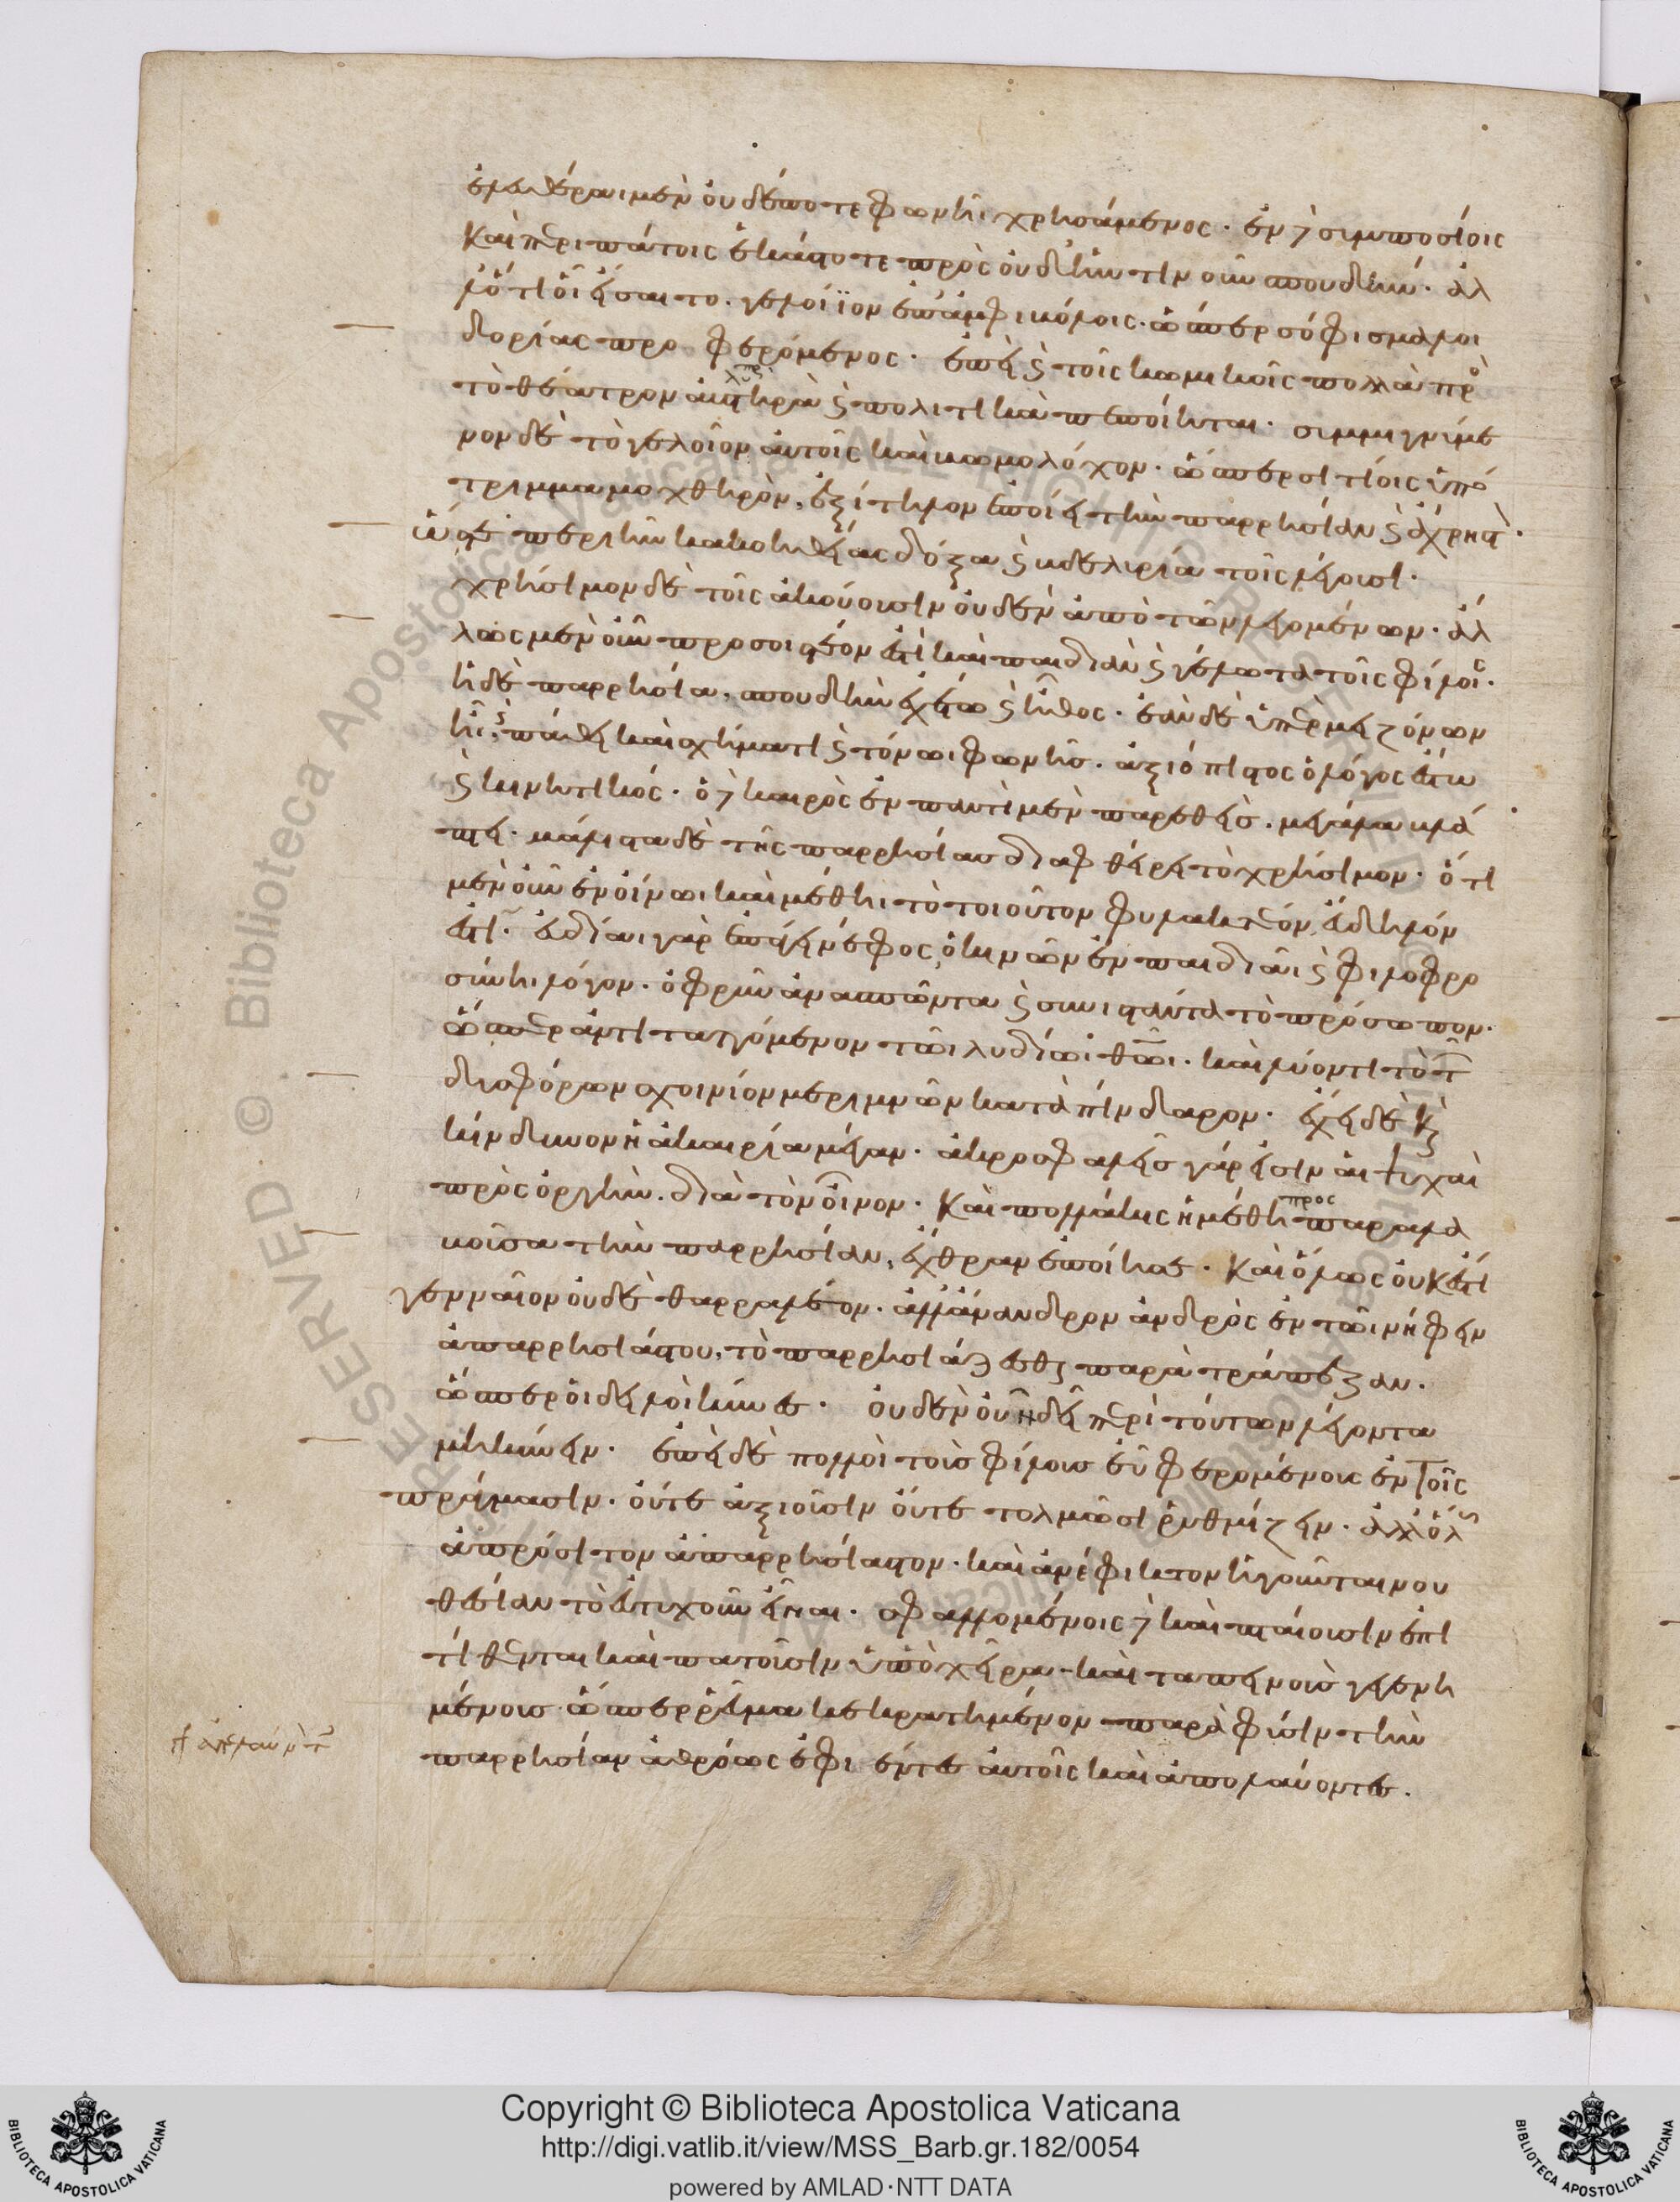 ἐλευθέραι μὲν οὐδέποτε φωνῆι χρησάμενος· ἐν δὲ συμποσίοις
καὶ περιπάτοις ἑκάστοτε πρὸς οὐδεμίαν σπουδήν· ἀλ
λ᾽ ὅτι οἷ εἴσαιτο γελοίϊον ὥσπερ σόφισμα λοι
δορίας προφερόμενος· ἐπεὶ καὶ τοῖς κωμικοῖς πολλὰ πρὸς
τὸ θέατρον αὐστηρὰ καὶ πολιτικὰ πεποίηται· συμμιγνύμε
νον δὲ τὸ γελοῖον αὐτοῖς καὶ βωμολόχον· ὥσπερ σιτίοις ὑπό
τριμμα μοχθηρόν, ἐξίτηλον ἐποίει τὴν παρρησίαν καὶ ἄχρηστον·
ὥστε περιῆν κακοηθείας δόξα καὶ βδελυρία τοῖς λέγουσι·
χρήσιμον δὲ τοῖς ἀκούουσιν οὐδὲν ἀπὸ τῶν λεγομένων· ἄλ
λως μὲν οὖν προσοιστέον ἐστὶ καὶ παιδιὰν καὶ γέλωτα τοῖς φίλοις·
ἡ δὲ παρρησία, σπουδὴν ἐχέτω καὶ ἦθος· ἐὰν δὲ ὑπὲρ μειζόνων
ἦι, καὶ πάθει καὶ σχήματι καὶ τόνωι φωνῆς· ἀξιόπιστος ὁ λόγος ἔστω
καὶ κινητικός· ὁ δὲ καιρὸς ἐν παντὶ μὲν παρεθεὶς μεγάλα βλά
πτει· μάλιστα δὲ τῆς παρρησίας διαφθείρει τὸ χρήσιμον· ὅτι
μὲν οὖν ἐν οἴνωι καὶ μέθηι τὸ τοιοῦτον φυλακτέον, εὔδηλόν
ἐστιν· εὐδίαι γὰρ ἐπάγει νέφος, ὁ κινῶν ἐν παιδιᾶι καὶ φιλοφρο
σύνηι λόγον· ὀφρῦν ἀνασπῶντα καὶ συνιστάντα τὸ πρόσωπον·
ὥσπερ ἀντιταττόμενον τῶι λυδίωι θεῶι· καὶ λύοντι τὸ τῶν
δυσφόρων σχοινίον μεριμνῶν κατὰ πίνδαρον· ἔχει δὲ καὶ
κίνδυνον ἡ ἀκαιρία μέγαν· ἀκροσφαλεῖς γάρ εἰσιν αἱ ψυχαὶ
πρὸς ὀργὴν διὰ τὸν οἶνον· καὶ πολλάκις ἡ μέθη προς παραλα
βοῦσα τὴν παρρησίαν, ἔχθραν ἐποίησε· καὶ ὅλως οὐκ ἔστι
γενναῖον οὐδὲ θαρραλέον· ἀλλ᾽ ἄνανδρον ἀνδρὸς ἐν τῶι νήφειν
ἀπαρρησιάστου, τὸ παρρησιάζεσθαι παρὰ τράπεζαν·
ὥσπερ οἱ δειλοὶ κύνες· οὐδὲν οὖν δεῖ περὶ τούτων λέγοντα
μηκύνειν· ἐπεὶ δὲ πολλοὶ τοὺς φίλους εὖ φερομένους ἐν τοῖς
πράγμασιν· οὔτε ἀξιοῦσιν οὔτε τολμῶσι ῥυθμίζειν· ἀλλ᾽ ὅλως
ἀπρόσιτον ἀπαρρησίαστον· καὶ ἀνέφικτον ἡγοῦνται νου
θεσίαν τὸ εὐτυχοῦν εἶναι· σφαλλομένοις δὲ καὶ πταίουσιν ἐπι
τίθενται καὶ πατοῦσιν ὑπὸ χεῖρα καὶ ταπεινοὺς γεγενη
μένους ὥσπερ ῥεῦμα κεκρατημένον παρὰ φύσιν τὴν
παρρησίαν ἀθρόως ἐφιέντες αὐτοῖς καὶ ἀπολαύοντες·
Copyright © Biblioteca Apostolica Vaticana
http://digi.vatlib.it/view/MSS_Barb.gr.182/0054
powered by AMLAD·NTT DATA